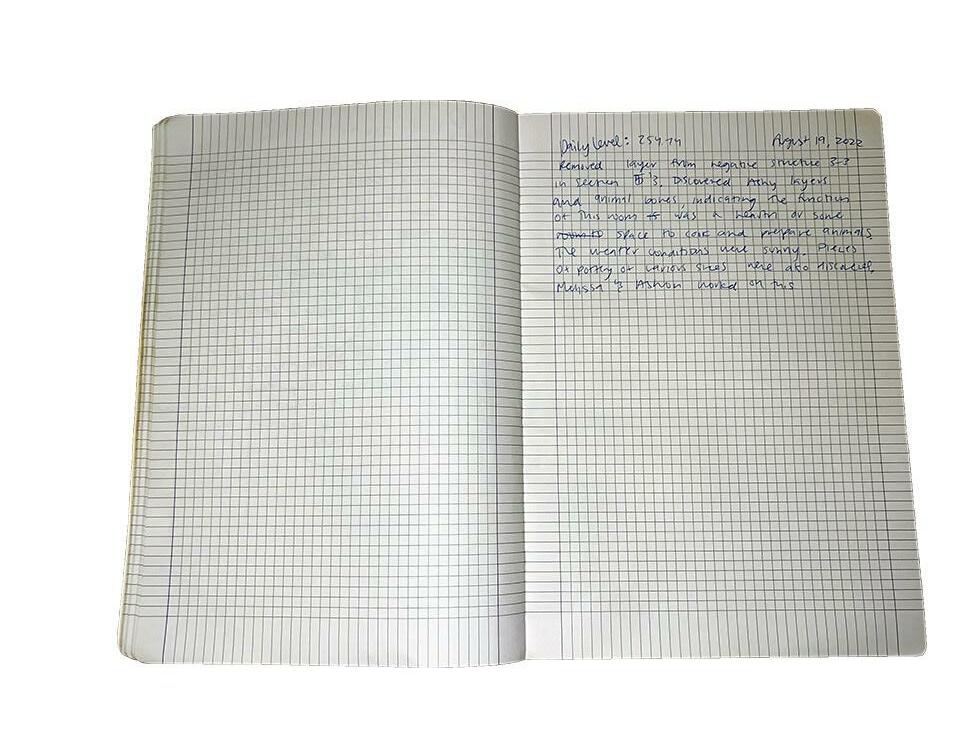 Daily level: 254.74 August 19, 2022
Removed layer from negative structure 3-3
in section III 3. Discovered Ashy layers
and animal bones, indicating the function
of this room was a hearth or some
room to space to cook and prepare animals.
The weather conditions were sunny. Pieces
of pottery of various sizes were also discovered.
Melissa & Ashton worked on this